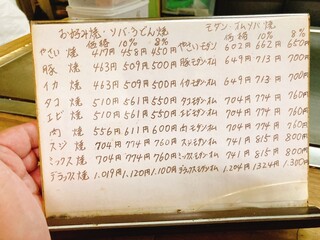 お好み焼・ソバ・うどん焼 モダン・オムソバ焼
価格 10% 8% 価格 10% 8%
やさい焼 417円 458円 450円 やさいモダン 602円 662円 650円
豚焼 463円 509円 500円 豚モダン・オム 649円 713円 700円
イカ焼 463円 509円 500円 イカモダン・オム 649円 713円 700円
タコ焼 510円 561円 550円 タコモダン・オム 704円 774円 760円
エビ焼 510円 561円 550円 エビモダン・オム 704円 774円 760円
肉焼 556円 611円 600円 肉モダン・オム 704円 774円 760円
スジ焼 704円 774円 760円 スジモダン・オム 741円 815円 800円
ミックス焼 704円 774円 760円 ミックスモダン・オム 741円 815円 800円
デラックス焼 1,019円 1,120円 1,100円 デラックスモダン・オム 1,204円 1,324円 1,300円